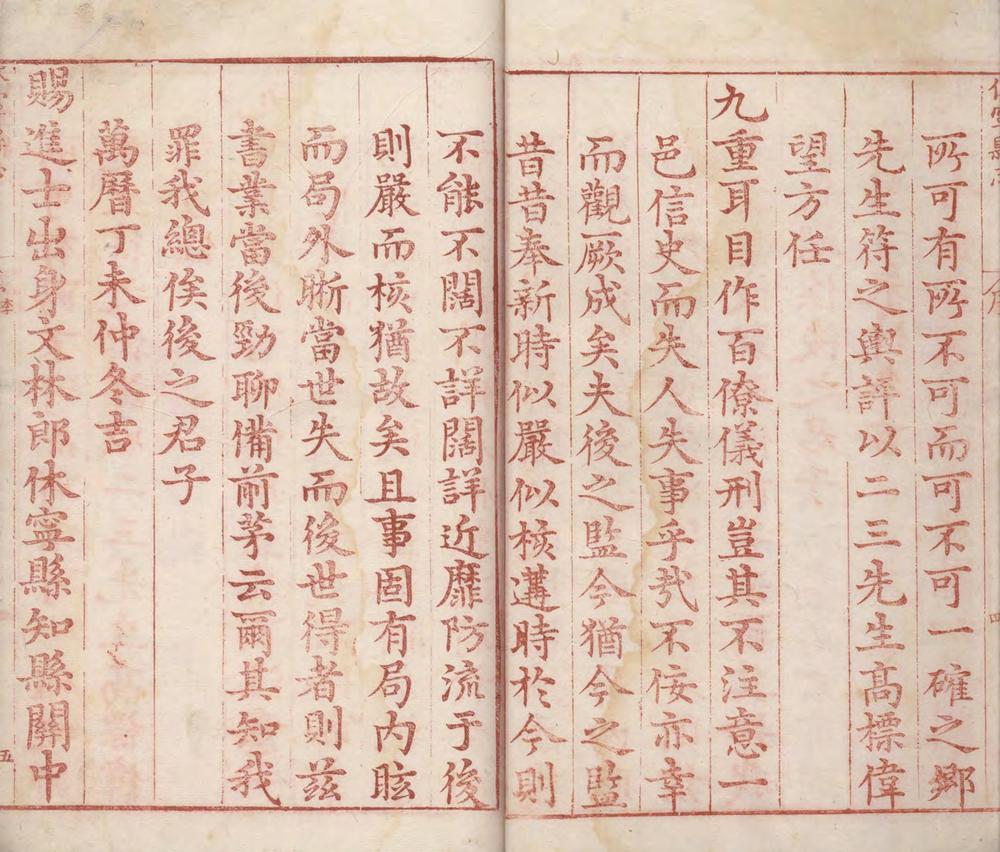 所可有所不可而可不可一確之鄉
先生符之輿評以二三先生髙標偉
望方任
九重耳目作百僚儀刑豈其不注意一
邑信史而失人失事乎㢤不佞亦幸
而觀厥成矣夫後之監今猶今之監
昔昔奉新時似嚴似核遘時於今則
不能不闊不詳闊詳近靡防流于後
則嚴而核猶故矣且事固有局内眩
而局外晣當世失而後世得者則兹
書業當後勁聊備前茅云爾其知我
罪我總俟後之君子
萬曆丁未仲冬吉
賜進士出身文林郎休寧縣知縣關中
五